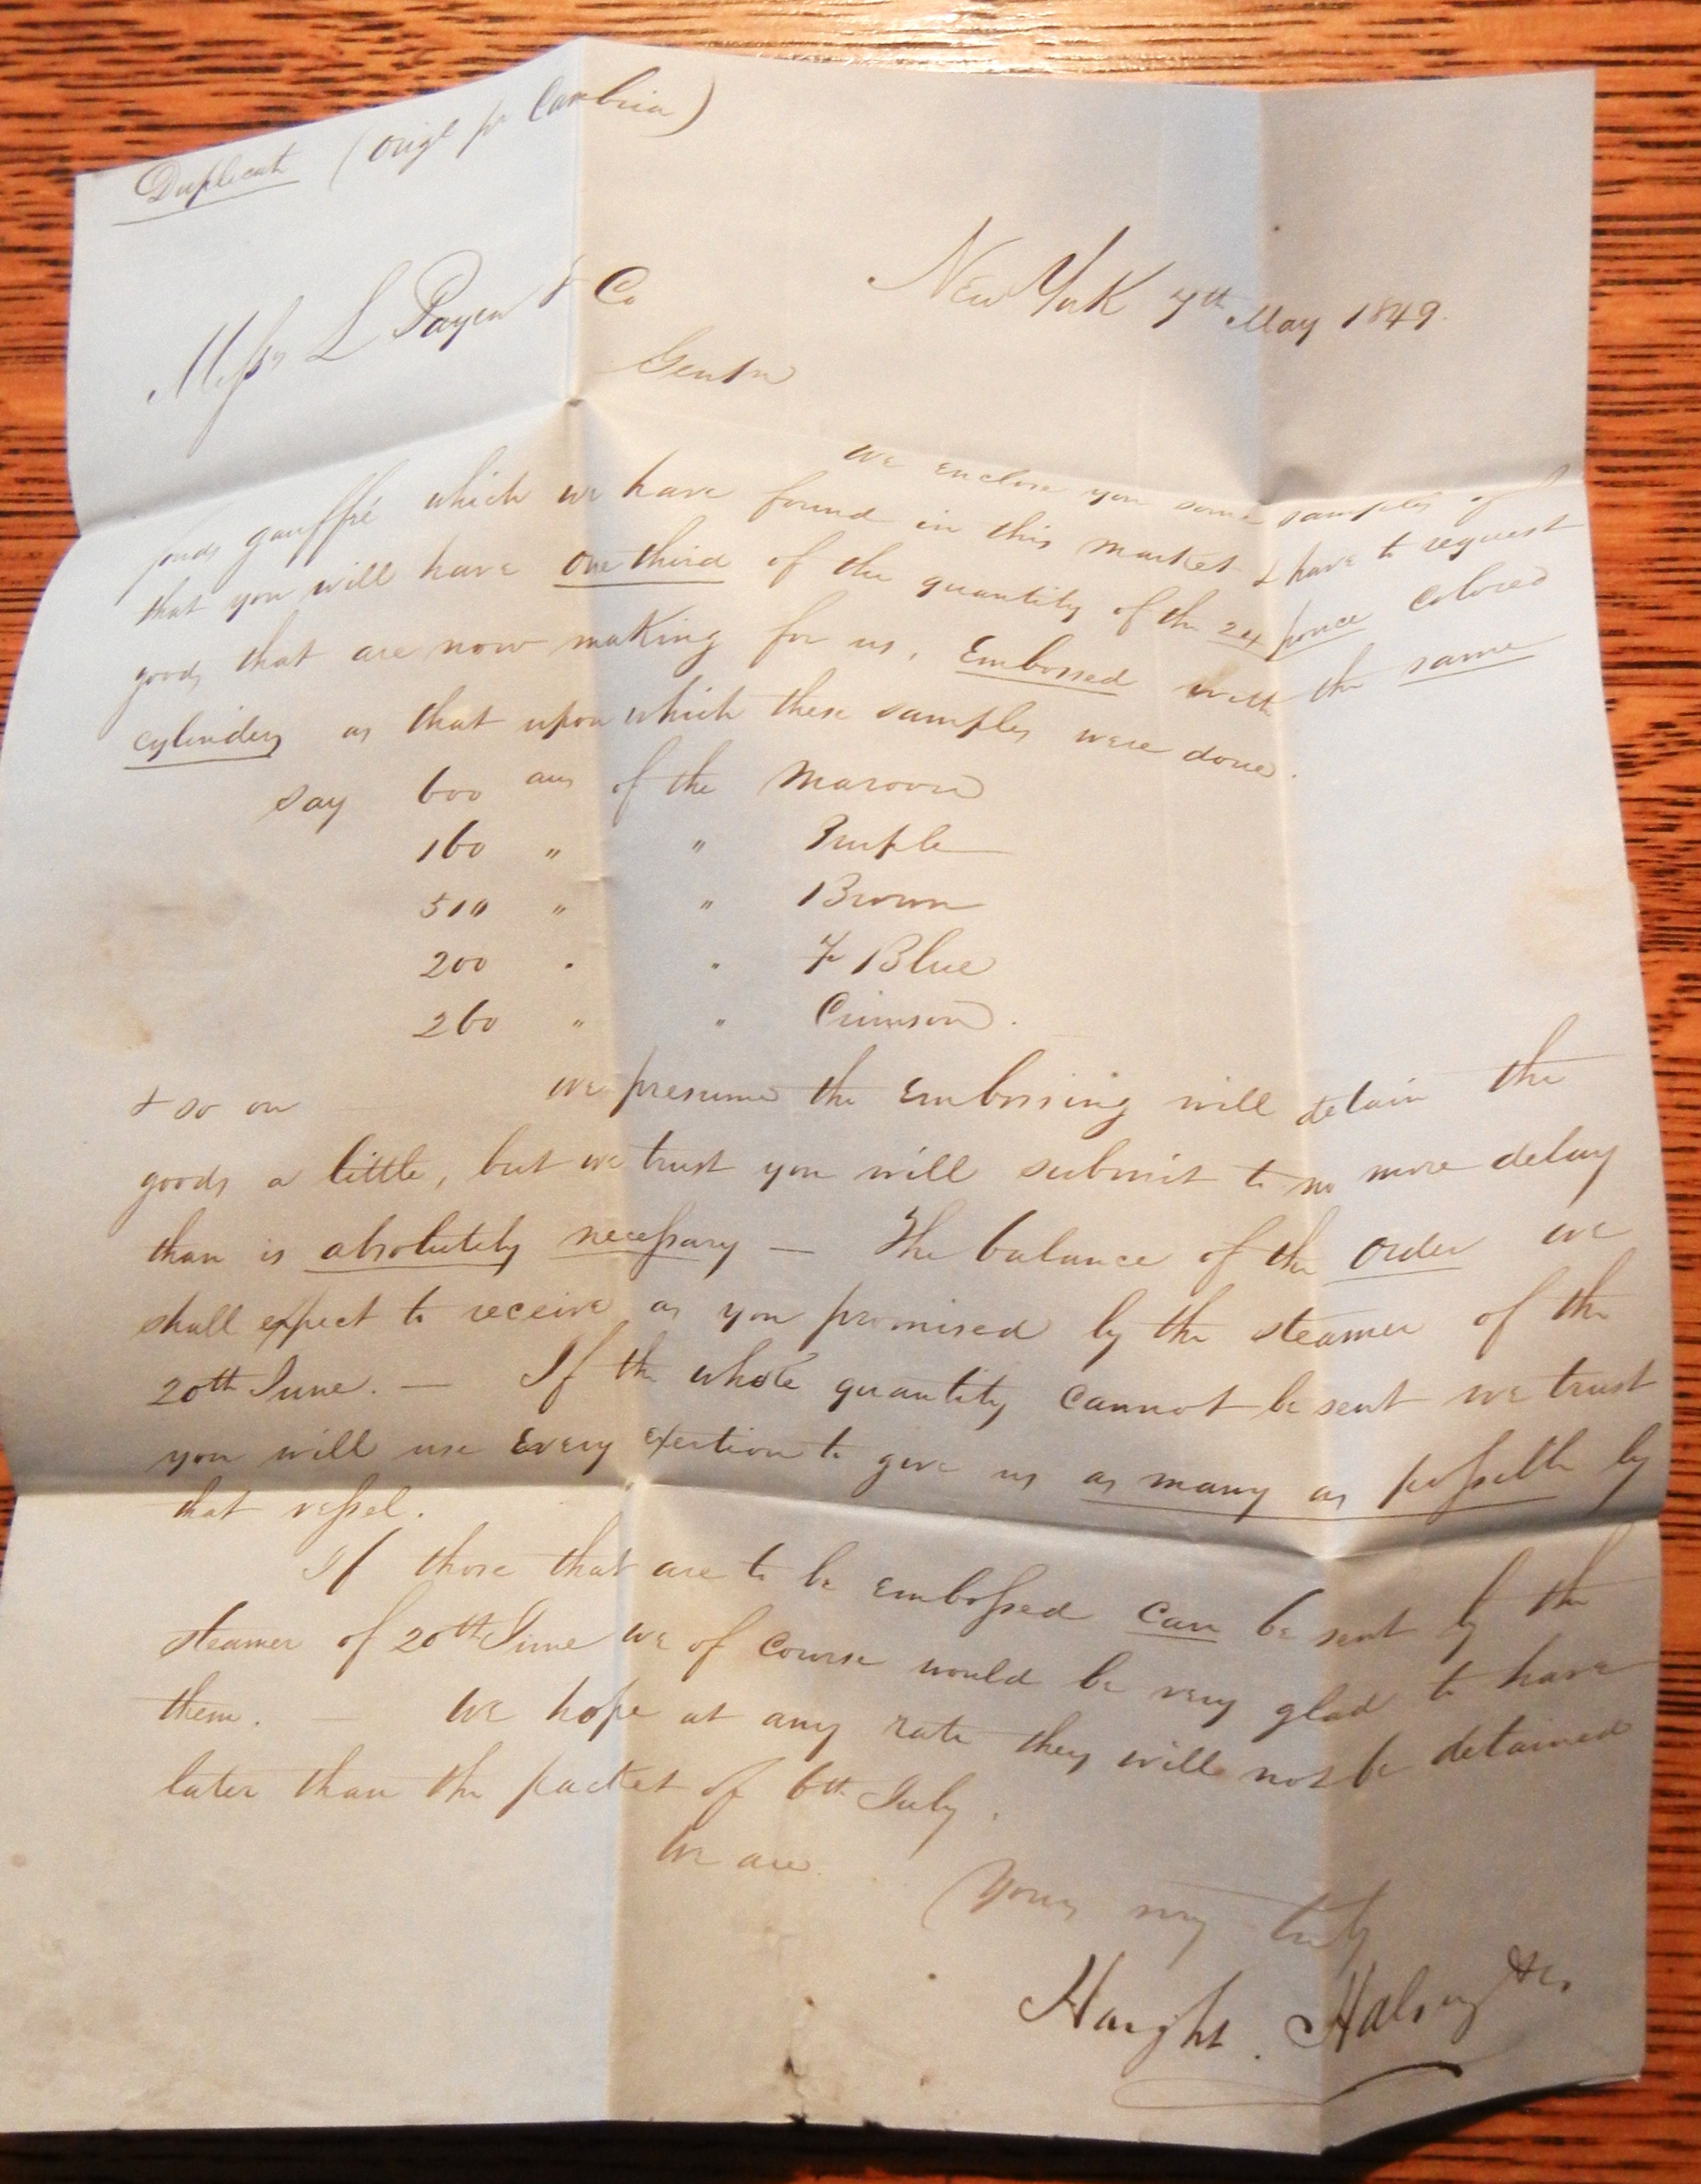 Duplicate (Origl pr Cambria)
New York 7th May 1849.
Messrs L Payen & Co
Gentn
We enclose you some samples of
gauffré which we have found in this market & have to request
that you will have one third of the quantity of the 24 pouce colored
goods that are now making for us, Embossed with the same
cylinders as that upon which these samples were done.
say 600 aus of the Maroon
160 " " Purple
510 " " Brown
200 " " Fr Blue
260 " " Crimson.
& so on We presume the Embossing will detain the
goods a little, but we trust you will submit to no more delay
than is absolutely necessary — The balance of the order we
shall expect to receive as you promised by the steamer of the
20th June. — If the whole quantity cannot be sent we trust
you will use Every exertion to give us as many as possible by
that vessel.
If those that are to be Embossed can be sent by the
steamer of 20th June we of course would be very glad to have
them. — We hope at any rate they will not be detained
later than the packet of 6th July.
We are
Yours very truly
Haight. Halsey & Co.